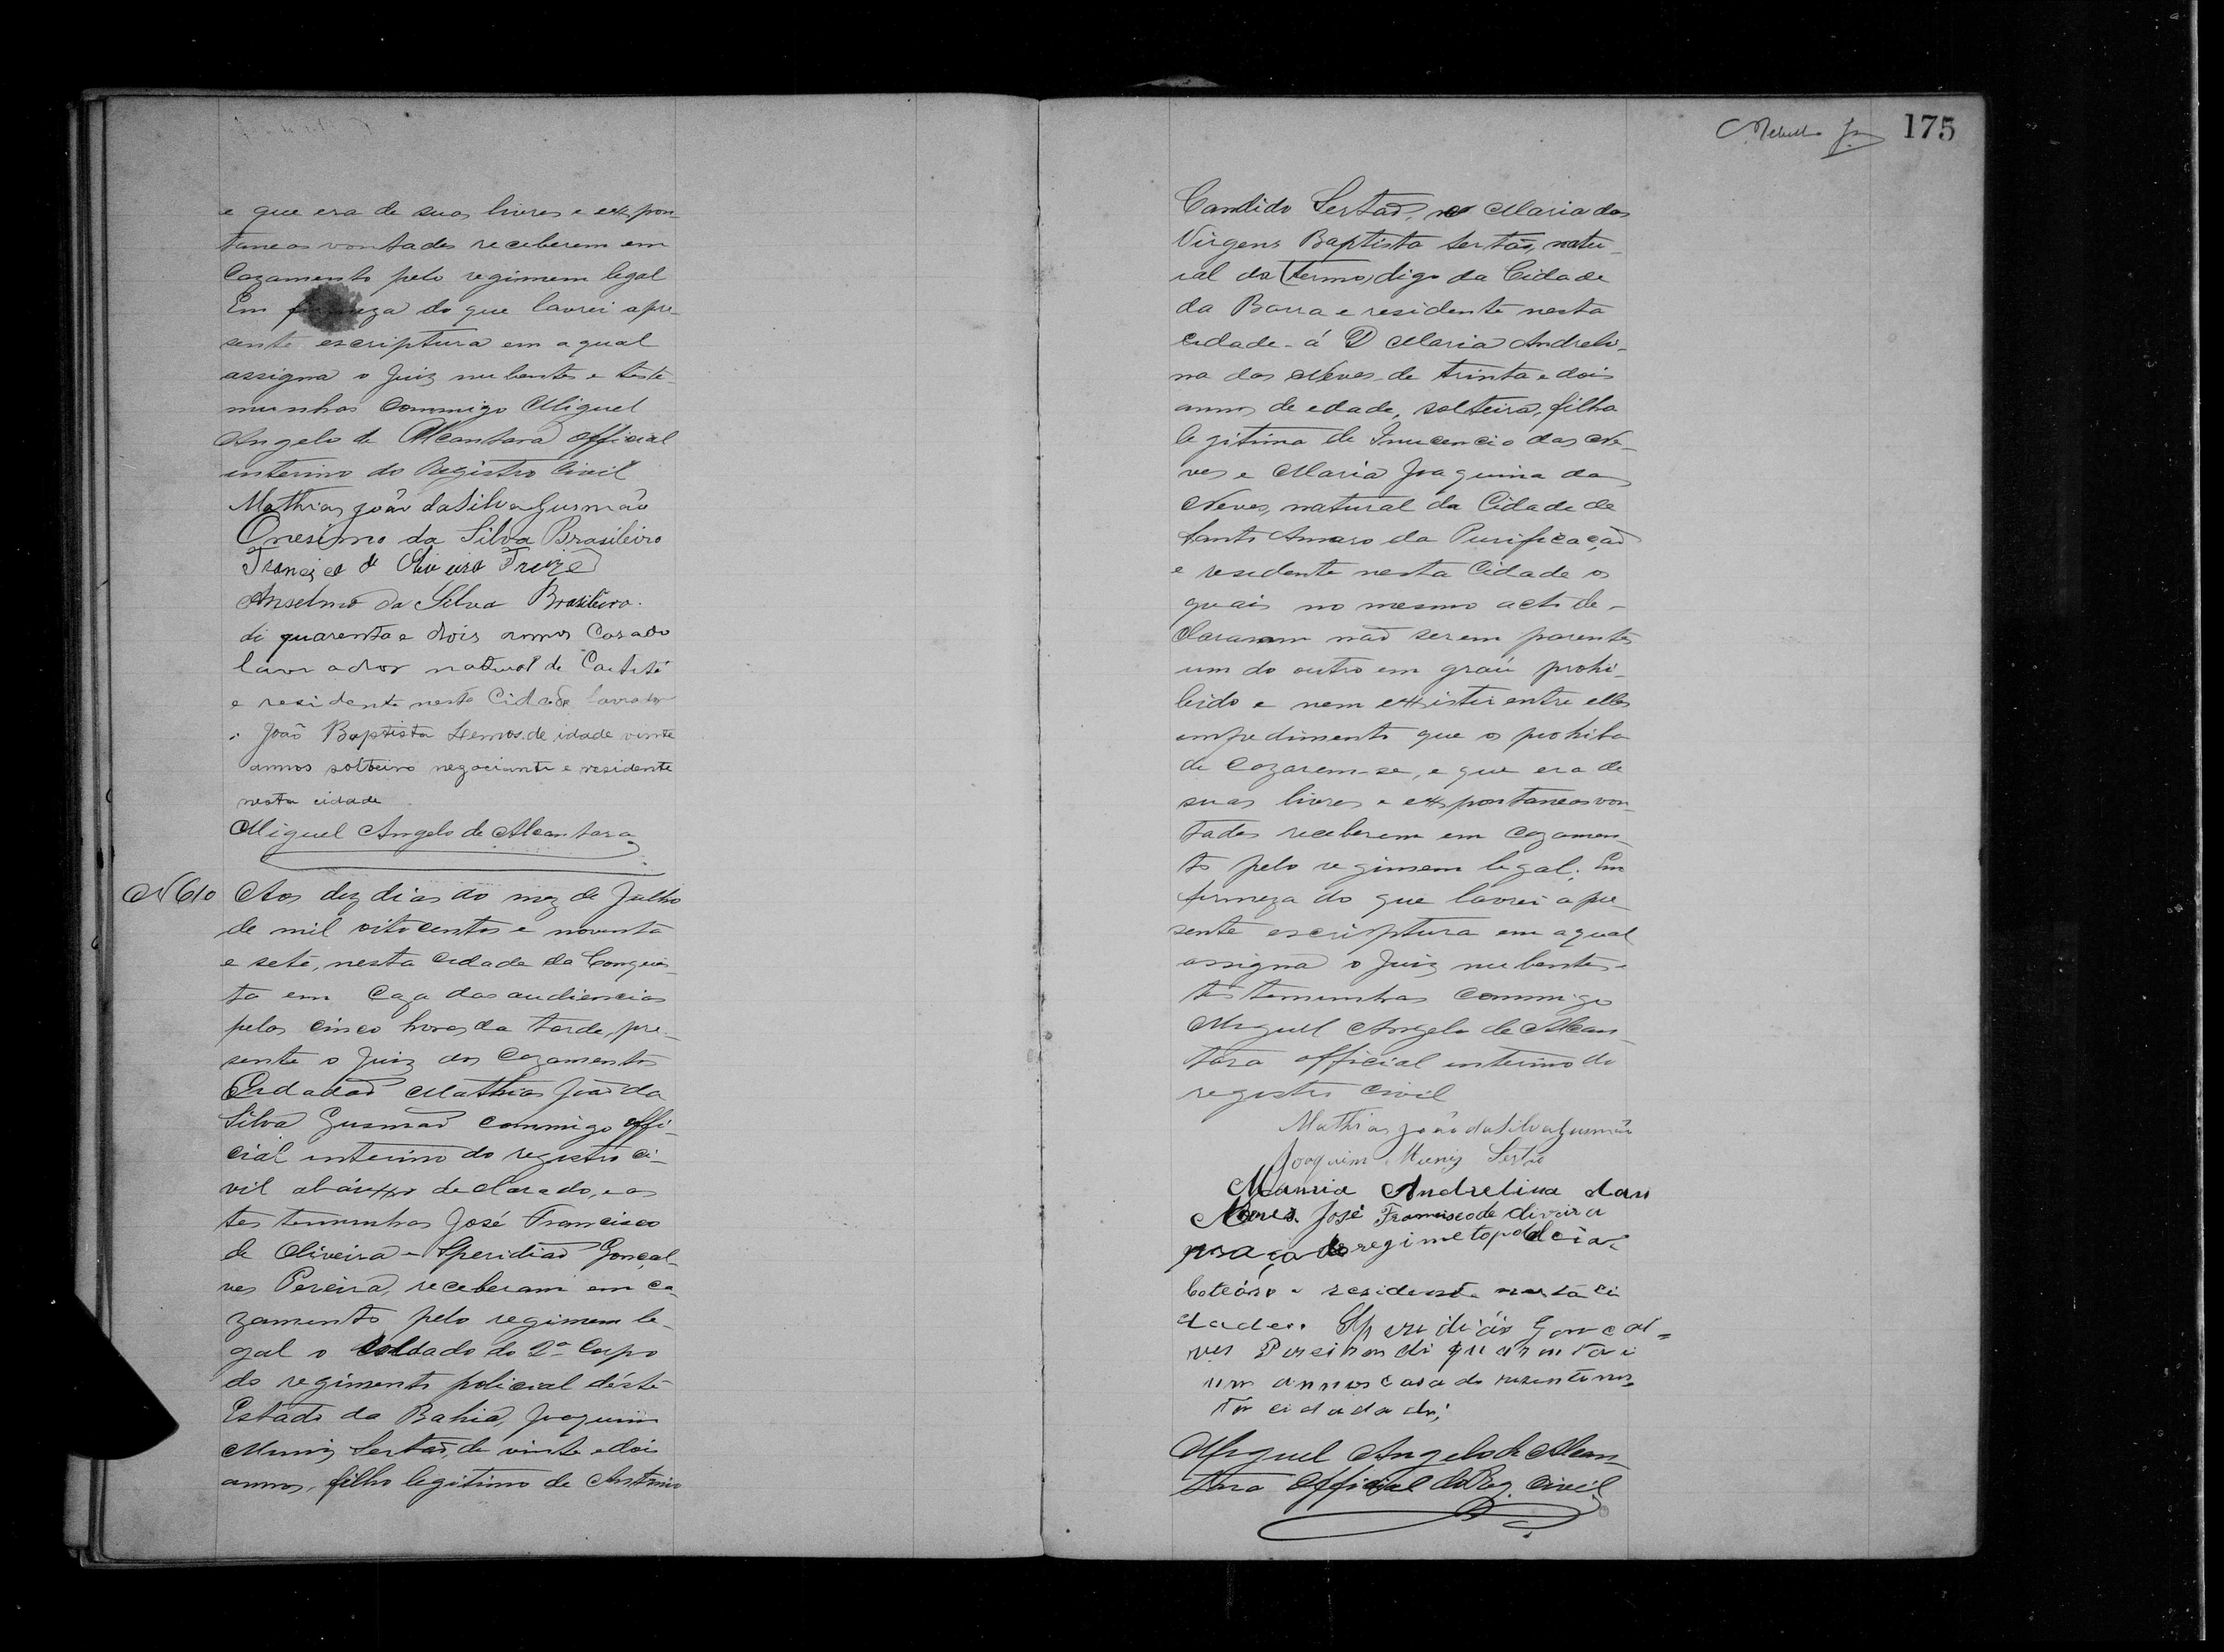 e que era de suas livres e expon-
taneas vontades receberem em
Cazamento pelo regimem legal
Em firmeza do que lavrei apre-
sente escriptura em a qual
assigna o Juiz nubentes e teste-
munhas Commigo Miguel
Angelo de Alcantara official
interino do Registro Civil
Mathias João da Silva Gusmão
Onesimo da Silva Brasileiro
Francisca de Oliveira Freire
Anselmo da Silva Brasileiro.
di quarenta e dois annos Casado
lavrador natural de Caetité
e residente nesta Cidade lavrador
João Baptista Lemos de idade vinte
annos solteiro negociante e residente
nesta cidade
Miguel Angelo de Alcantara
N 610
Aos dez dias do mez de Julho
de mil oitocentos e noventa
e sete, nesta Cidade da Conquis-
ta em Caza das audiencias
pelas cinco horas da tarde, pre-
sente o Juiz dos Cazamentos
Cidadaõ Mathias Joaõ da
Silva Gusmaõ commigo offi-
cial interino do registro ci-
vil abáixo declarado, e as
testemunhas José Francisco
de Oliveira e Speridiaõ Gonçal-
ves Pereira, receberam em ca-
zamento pelo regimem le-
gal o soldado do 2º Corpo
do regimento policial déste
Estado da Bahia, Joaquim
Muniz Sertaõ, de vinte e dois
annos, filho legitimo de Antonio
175
Candido Sertaõ, e Maria das
Virgens Baptista Sertaõ, natu-
ral do (termo) digo da Cidade
da Barra e residente nesta
cidade á D Maria Andreli-
na das Neves de trinta e dois
annos de edade, solteira, filha
legitima de Innocencio das Ne-
ves e Maria Joaquina das
Neves, natural da Cidade de
Santo Amaro da Purificaçaõ
e residente nesta Cidade os
quais no mesmo acto de-
clararam naõ serem parentes
um do outro em graú prohi-
bido e nem existir entre elles
impedimento que os prohiba
de Cazarem-se, e que era de
suas livres e expontaneas von-
tades receberem em cazamen-
to pelo regimem legal; Em
firmeza do que lavrei apre-
sente escriptura em a qual
assigna o Juiz nubentes e
testemunhas commigo
Miguel Angelo de Alcan-
tara official interino do
registro civil
Mathias João da Silva Gusmão
Joaquim Muniz Sertão
Maria Andrelina das
Neves. José Francisco de Oliveira
praça do regimeto poldcial
e residente nesta ci
dade. Speridião Goncal-
ves Pereira di quarenta i
um annos casado nes
ta cidade
Miguel Angelo de Alcan-
tara Official do Reg. Civil